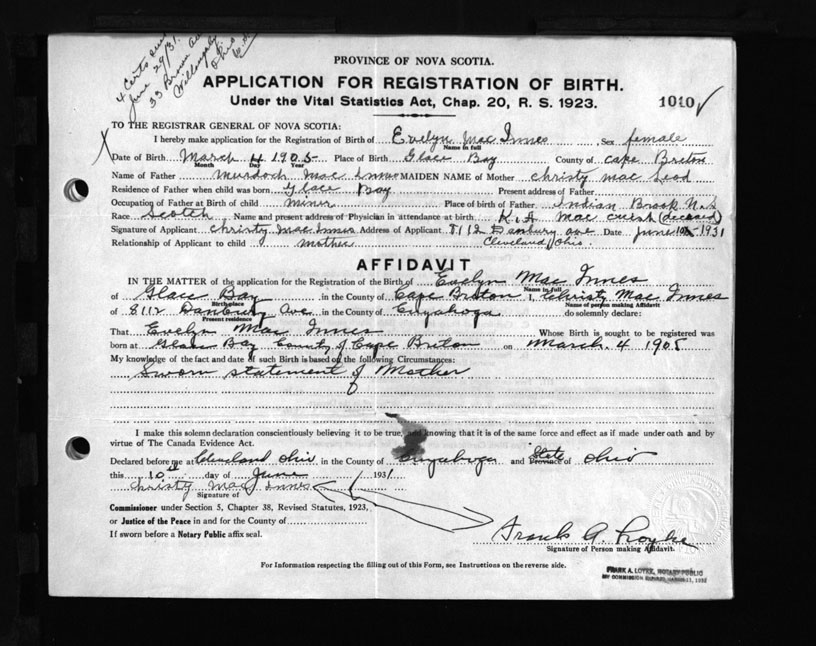 4 Certs sent
June 29/31.
33 Brown Ave
Willoughby
Ohio
PROVINCE OF NOVA SCOTIA.
APPLICATION FOR REGISTRATION OF BIRTH.
Under the Vital Statistics Act, Chap. 20, R. S. 1923.
1010 ✓
TO THE REGISTRAR GENERAL OF NOVA SCOTIA:
I hereby make application for the Registration of Birth of Evelyn Mac Innes, Sex female
Name in full
X Date of Birth March 4 1905 Place of Birth Glace Bay County of Cape Breton
Month Day Year
Name of Father Murdoch Mac Innes MAIDEN NAME of Mother Christy Mac Leod
Residence of Father when child was born Glace Bay Present address of Father
Occupation of Father at Birth of child miner Place of birth of Father Indian Brook N.S
Race Scotch Name and present address of Physician in attendance at birth K. A Mac (deceased)
Signature of Applicant Christy Mac Innes Address of Applicant 8112 Danbury ave Date June 10 - 1931
Relationship of Applicant to child mother Cleveland Ohio.
AFFIDAVIT
IN THE MATTER of the application for the Registration of the Birth of Evelyn Mac Innes
Name in full
of Glace Bay in the County of Cape Breton I, Christy Mac Innes
Birth place Name of person making Affidavit
of 8112 Danbury Ave. in the County of Cuyahoga do solemnly declare:
Present residence
That Evelyn Mac Innes Whose Birth is sought to be registered was
born at Glace Bay County of Cape Breton on March. 4 1905
My knowledge of the fact and date of such Birth is based of the following Circumstances:
Sworn statement of Mother
I make this solemn declaration conscientiously believing it to be true, and knowing that it is of the same force and effect as if made under oath and by
virtue of The Canada Evidence Act.
Declared before me at Cleveland Ohio in the County of Cuyahoga and State Province of Ohio
this 10th day of June 1931
Christy Mac Innes
Signature of
Commissioner under Section 5, Chapter 38, Revised Statutes, 1923,
or Justice of the Peace in and for the County of
If sworn before a Notary Public affix seal.
Frank A. Loyke
Signature of Person making Affidavit.
For Information respecting the filling out of this Form, see Instructions on the reverse side.
FRANK A. LOYKE, NOTARY PUBLIC
MY COMMISSION EXPIRES MARCH 11, 1932